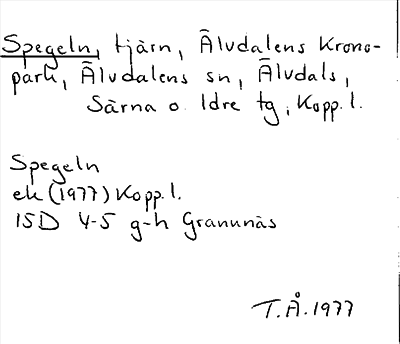 Spegeln, tjärn, Älvdalens Krono-
park, Älvdalens sn, Älvdals,
Särna o. Idre tg, Kopp. l.
Spegeln
ek (1977) Kopp. l.
15D 4-5 g-h Grannäs
T.Å. 1977